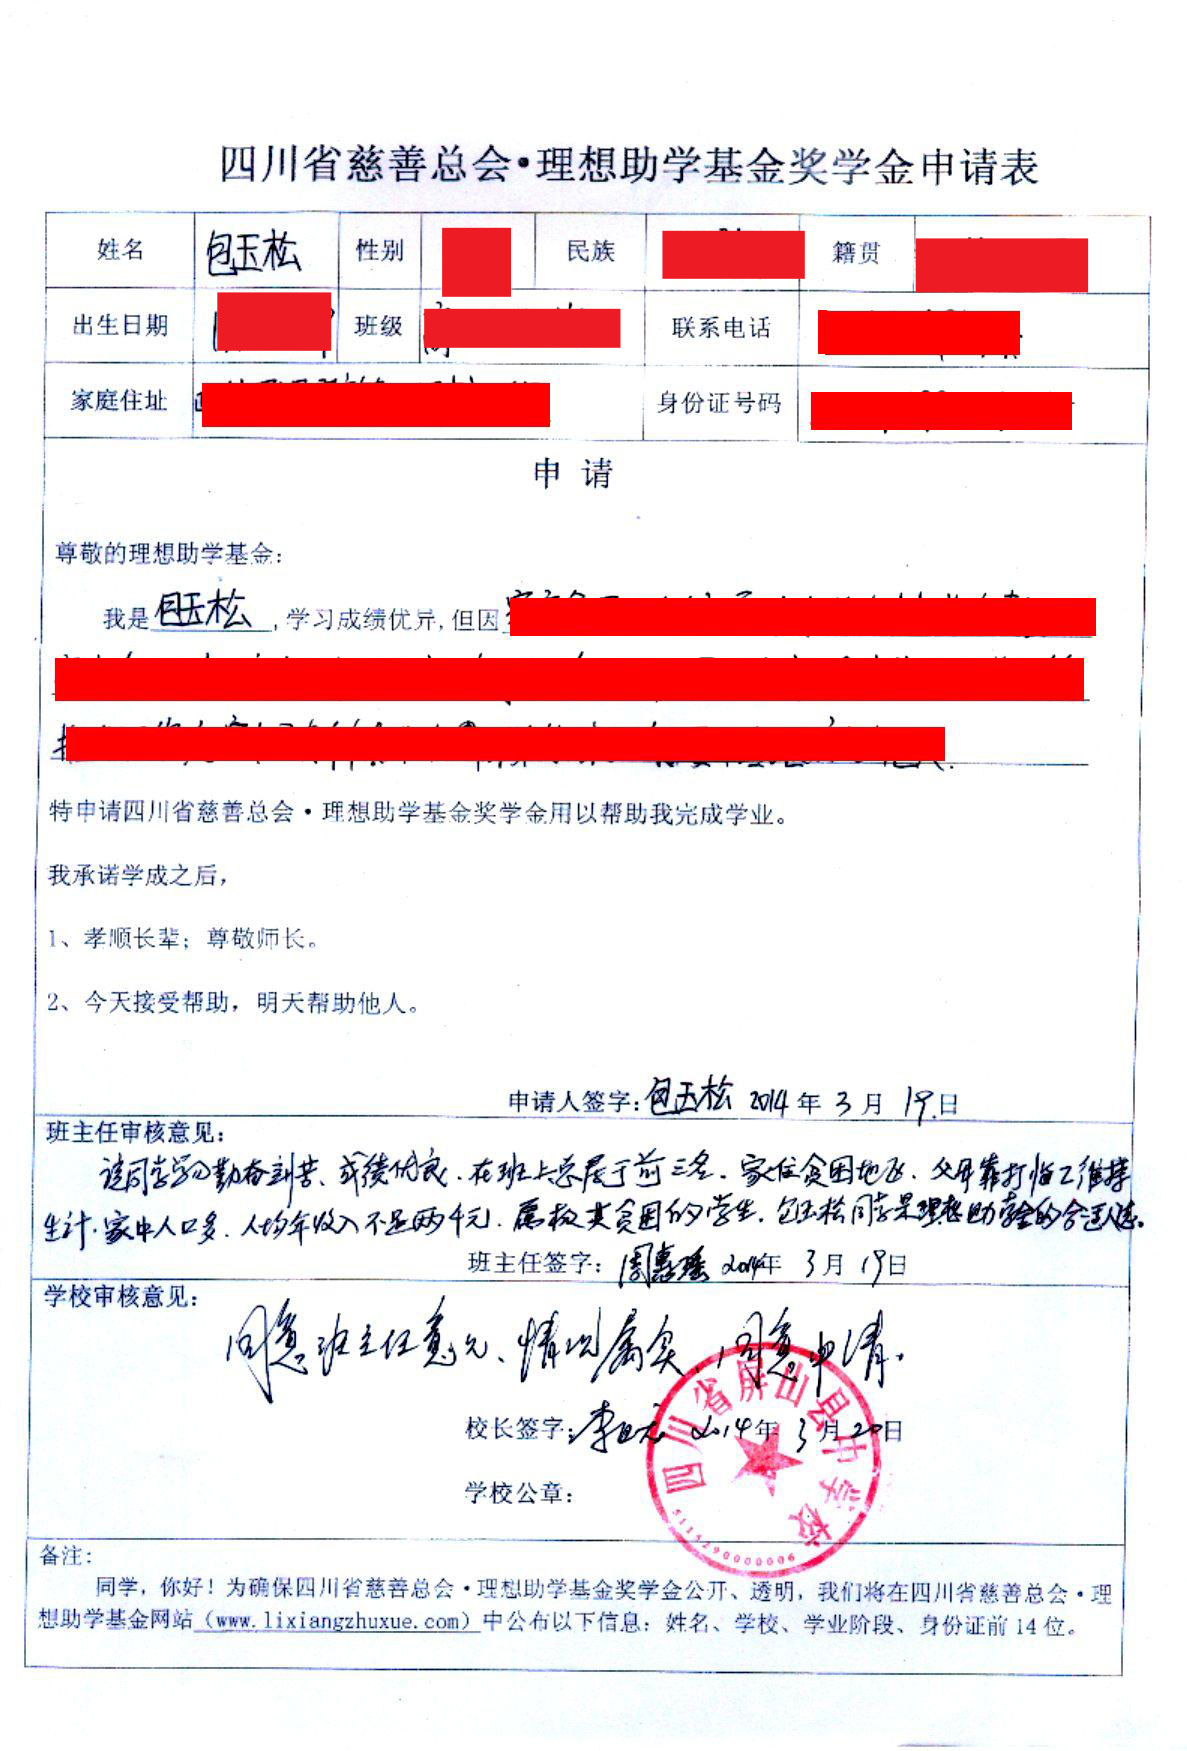 四川省慈善总会·理想助学基金奖学金申请表
姓名 包玉松 性别 民族 籍贯
出生日期 班级 联系电话
家庭住址 身份证号码
申 请
尊敬的理想助学基金：
我是包玉松，学习成绩优异，但因
特申请四川省慈善总会·理想助学基金奖学金用以帮助我完成学业。
我承诺学成之后，
1、孝顺长辈；尊敬师长。
2、今天接受帮助，明天帮助他人。
申请人签字：包玉松 2014年 3月 19日
班主任审核意见：
该同学学习勤奋刻苦、成绩优良．在班上总居于前三名．家住贫困地区．父母靠打临工维持
生计．家中人口多．人均年收入不足两千元．属极其贫困的学生．包玉松同学是理想助学金的合适人选。
班主任签字：周嘉瑶 2014年 3月 19日
学校审核意见：
同意班主任意见、情况属实，同意申请。
校长签字： 2014年 3月 20日
学校公章：
四川省屏山县中学校
5115290000006
备注：
同学，你好！为确保四川省慈善总会·理想助学基金奖学金公开、透明，我们将在四川省慈善总会·理
想助学基金网站（www.lixiangzhuxue.com）中公布以下信息：姓名、学校、学业阶段、身份证前14位。